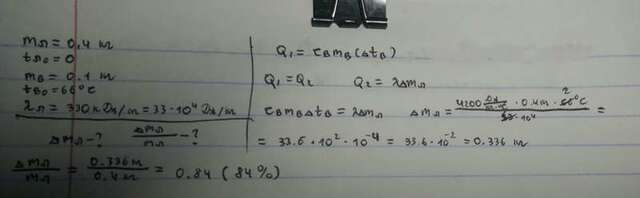 mл = 0,4 кг
tл₀ = 0
mв = 0.1 кг
tв₀ = 66°C
λл = 330 кДж/кг = 33·10⁴ Дж/кг
Δmл - ? Δmл/mл - ?
Q₁ = cвmв(Δtв)
Q₁ = Q₂ Q₂ = λΔmл
cвmвΔtв = λΔmл Δmл = 4200 Дж/кг·°C · 0.4кг · 66°C 2 / 33·10⁴ =
= 33.6·10²·10⁻⁴ = 33.6·10⁻² = 0.336 кг
Δmл/mл = 0.336кг/0.4кг = 0.84 (84%)